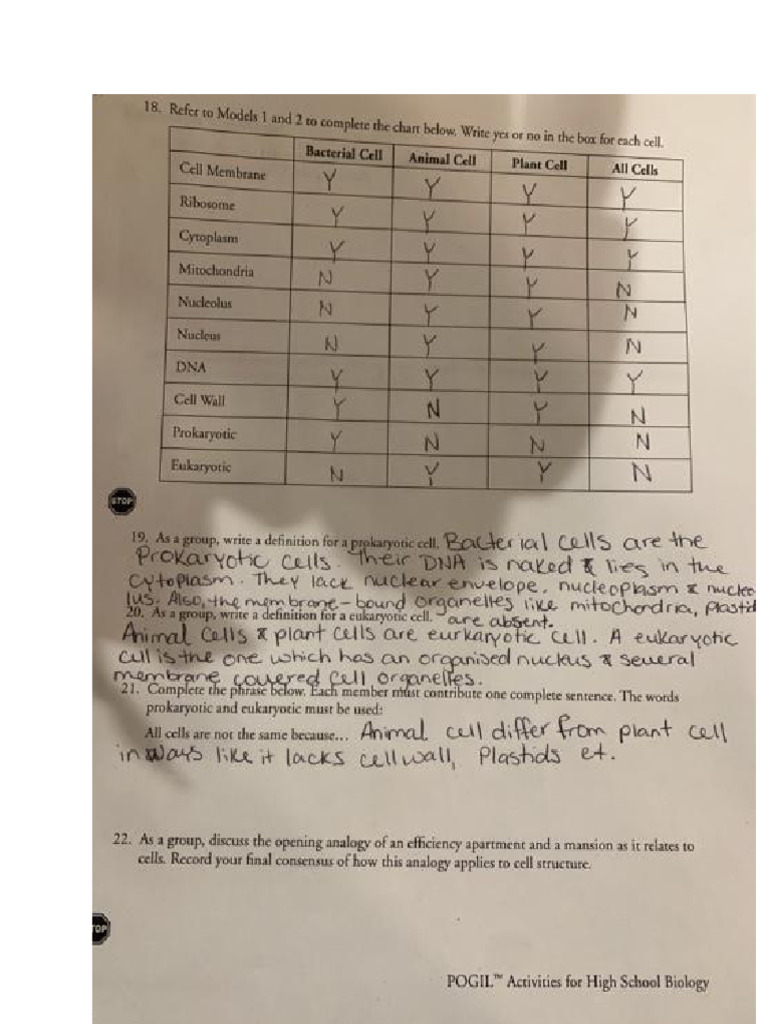 18. Refer to Models 1 and 2 to complete the chart below. Write yes or no in the box for each cell.
Bacterial Cell Animal Cell Plant Cell All Cells
Cell Membrane Y Y Y Y
Ribosome Y Y Y Y
Cytoplasm Y Y Y Y
Mitochondria N Y Y N
Nucleolus N Y Y N
Nucleus N Y Y N
DNA Y Y Y Y
Cell Wall Y N Y N
Prokaryotic Y N N N
Eukaryotic N Y Y N
STOP
19. As a group, write a definition for a prokaryotic cell. Bacterial cells are the
Prokaryotic cells. Their DNA is naked & lies in the
cytoplasm. They lack nuclear envelope, nucleoplasm & nucleo
lus. Also, the membrane-bound organelles like mitochondria, plastid
20. As a group, write a definition for a eukaryotic cell. are absent.
Animal cells & plant cells are eurkaryotic cell. A eukaryotic
cell is the one which has an organised nucleus & several
membrane covered cell organelles.
21. Complete the phrase below. Each member must contribute one complete sentence. The words
prokaryotic and eukaryotic must be used:
All cells are not the same because... Animal cell differ from plant cell
in ways like it lacks cell wall, Plastids et.
22. As a group, discuss the opening analogy of an efficiency apartment and a mansion as it relates to
cells. Record your final consensus of how this analogy applies to cell structure.
TOP
POGIL™ Activities for High School Biology